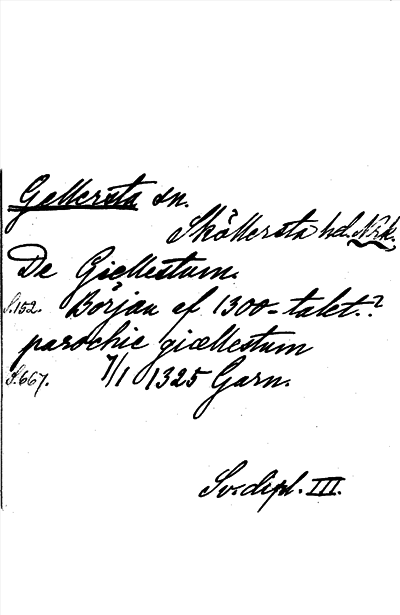 Gellersta sn.
Sköllersta hd. Nrk.
De Giellestum.
S. 152. Början af 1300-talet.?
parochie giællestum
S. 667. 7/1 1325 Garn.
Sv. dipl. III.